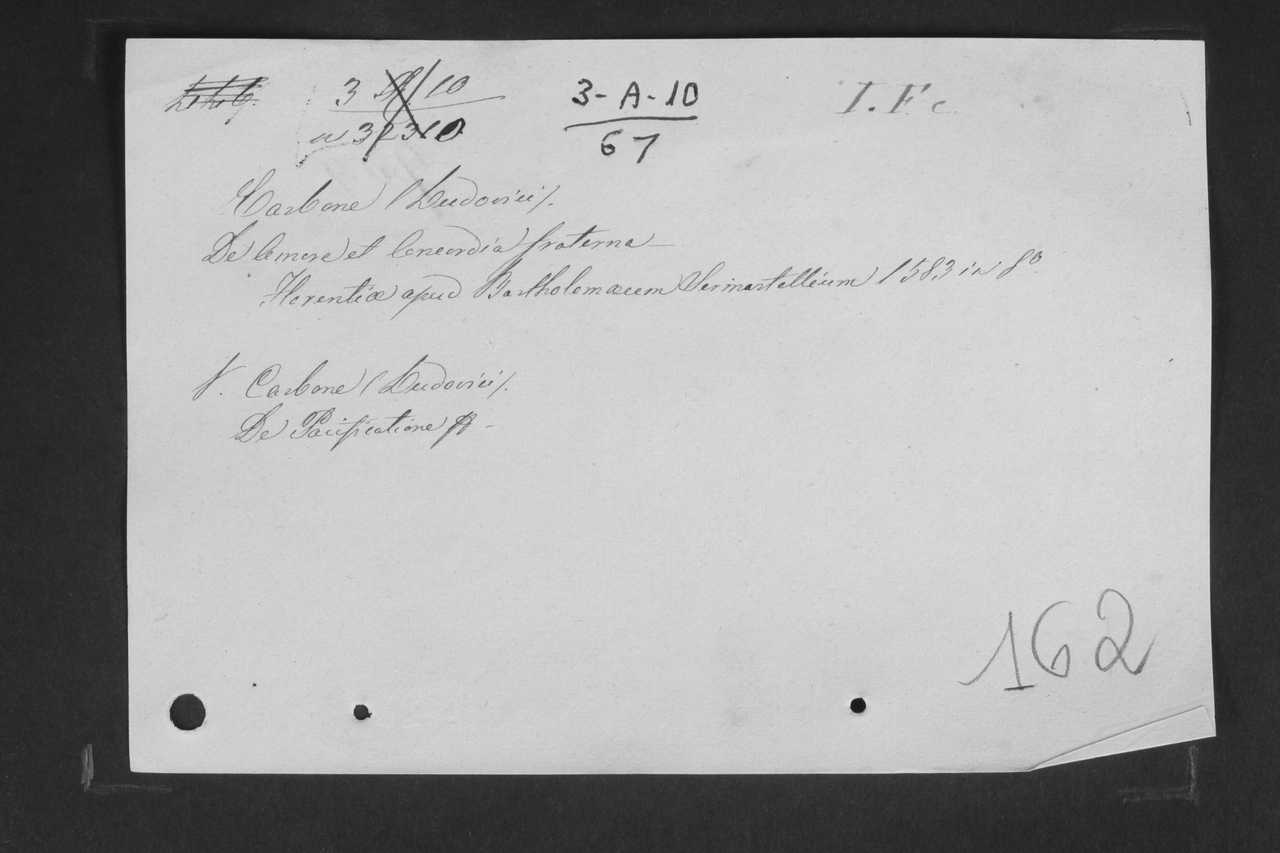 3-A-10
67
I. F c
Carbone (Ludovici).
De Amore et Concordia fraterna
Florentiæ apud Bartholomæum Sermartellium 1583 in 8º
V. Carbone (Ludovici).
De Pacificatione
162